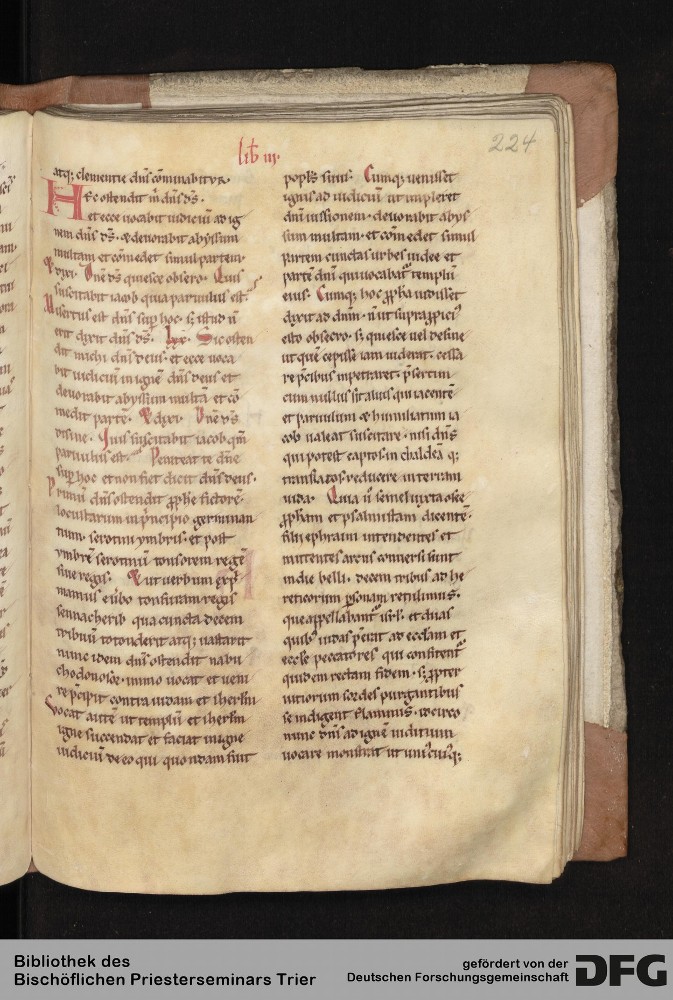 lib iii.
224
atq; clementie dn̄s com̄inabitur.
Hec ostendit m̄ dn̄s d̄s.
et ecce uocabit iudiciū ad ig
nem dn̄s d̄s. & deuorabit abyssum
multam et com̄edet simul partem.
& dixi. Dn̄e d̄s quiesce obsecro. Quis
suscitabit iacob quia paruulus est.
Misertus est dn̄s sup̄ hoc. s; istud n̄
erit dixit dn̄s d̄s. Lxx. Sic osten
dit michi dn̄s deus. et ecce uoca
bit iudiciū in ignē dn̄s deus et
deuorabit abyssum multā et cō
medit partē. & dixi. Dn̄e d̄s
desine. Quis suscitabit iacob qm̄
paruulus est. Peniteat te dn̄e
sup̄ hoc et non fiet dicit dn̄s deus.
Primū dn̄s ostendit p̱phe fictorē
locustarum in p̄ncipio germinan
tium. serotini ymbris. et post
ymbrē serotinū tonsorem regē
siue regis. & ut uerbum exp̄
mamus e ubo tonsuram regis
sennacherib qua cuncta decem
tribuū totonderit atq; uastarit
nunc idem dn̄s ostendit nabu
chodonosor. immo uocat et ueni
re p̄cipit contra iudam et iherl̄m
Vocat autē ut templū et iherl̄m
igne succendat et faciat in igne
iudiciū de eo qui quondam fuit
popl̄s suus. Cumq; uenisset
ignis ad iudiciū ut impleret
dn̄i iussionem. deuorabit abys
sum multam. et com̄edet simul
partem cunctas urbes iudee et
partē dn̄i qui uocabat̄ templū
eius. Cumq; hoc p̱pha uidisset
dixit ad dnm̄. n̄ ut supra p̱pici
esto obsecro. s; quiesce uel desine
ut quē cepisse iam uiderat. cessa
re p̄cibus inpetraret. p̄sertim
cum nullus sit alius qui iacentē
et paruulum & humiliatum ia
cob ualeat suscitare. nisi dn̄s
qui potest captos in chaldea q;
translatos reducere in terram
iuda. Quia ū semel iuxta osee
p̱pham et psalmistam dicentē.
filii ephraim intendentes et
mittentes arcus conuersi sunt
in die belli. decem tribus ad he
reticorum p̱sonam retulimus.
que appellabant̄ isrl̄. et duas
quib; iudas p̄erat ad eccl̄am et
eccl̄e peccatores qui confitent̄
quidem rectam fidem. s; p̱pter
uitiorum sordes purgantibus
se indigent flammis. idcirco
nunc dn̄s ad ignē iuditium
uocare monstrat ut uni᷒cui᷒q;
Bibliothek des
Bischöflichen Priesterseminars Trier
gefördert von der
Deutschen Forschungsgemeinschaft
DFG